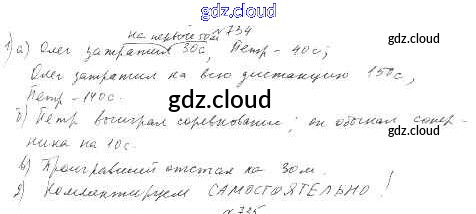 gdz.cloud
на первые 50м №734
1) а) Олег затратил 30с, Петр - 40с;
gdz.cloud
Олег затратил на всю дистанцию 150с,
Петр - 140с.
gdz.cloud
б) Петр выиграл соревнование; он обогнал сопер-
ника на 10с.
gdz.cloud
в) Проигравший отстал на 30м.
г) Комментируем САМОСТОЯТЕЛЬНО!
№735